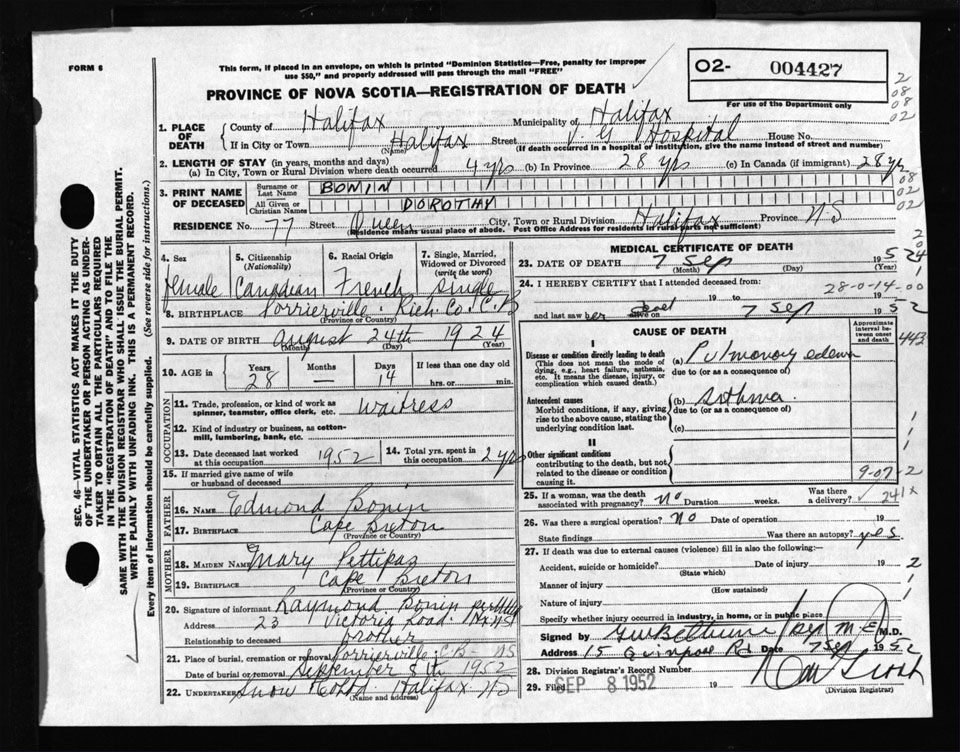 FORM 6
This form, if placed in an envelope, on which is printed "Dominion Statistics—Free, penalty for improper
use $50," and properly addressed will pass through the mail "FREE"
PROVINCE OF NOVA SCOTIA—REGISTRATION OF DEATH
O2- 004427
For use of the Department only
2
08
08
02
1. PLACE OF DEATH
County of Halifax Municipality of Halifax
If in City or Town Halifax Street V. G. Hospital House No.
(Name) (If death occurred in a hospital or institution, give the name instead of street and number)
2. LENGTH OF STAY (in years, months and days)
(a) In City, Town or Rural Division where death occurred 4 yrs (b) In Province 28 yrs (c) In Canada (if immigrant) 28 yrs
3. PRINT NAME OF DECEASED
Surname or Last Name BONIN
All Given or Christian Names DOROTHY
08
02
02
RESIDENCE No. 77 Street Queen City, Town or Rural Division Halifax Province N.S
(Residence means usual place of abode. Post Office Address for residents in rural parts not sufficient)
4. Sex female
5. Citizenship (Nationality) Canadian
6. Racial Origin French
7. Single, Married, Widowed or Divorced (write the word) Single
8. BIRTHPLACE Porrierville. Rich. Co. C.B
(Province or Country)
9. DATE OF BIRTH August 24th 1924
(Month) (Day) (Year)
10. AGE in Years 28 Months — Days 14 If less than one day old
hrs. or min.
OCCUPATION
11. Trade, profession, or kind of work as spinner, teamster, office clerk, etc. Waitress
12. Kind of industry or business, as cotton-mill, lumbering, bank, etc.
13. Date deceased last worked at this occupation 1952
14. Total yrs. spent in this occupation 2 yrs
15. If married give name of wife or husband of deceased
FATHER
16. Name Edmond Bonin
17. Birthplace Cape Breton
(Province or Country)
MOTHER
18. MAIDEN NAME Mary Pettipas
19. BIRTHPLACE Cape Breton
(Province or Country)
20. Signature of informant Raymond Bonin
Address 23 Victoria Road. Hx NS
Relationship to deceased brother
21. Place of burial, cremation or removal Porrierville C.B- NS
Date of burial or removal September 8th 1952
22. UNDERTAKER Snow Halifax NS
MEDICAL CERTIFICATE OF DEATH
23. DATE OF DEATH 7 Sep 1952
(Month) (Day) (Year)
24. I HEREBY CERTIFY that I attended deceased from:
28-0-14-00
19 to 19
and last saw her alive on 7 Sep 1952
CAUSE OF DEATH
Approximate interval between onset and death
443
I
Disease or condition directly leading to death
(This does not mean the mode of dying, e.g., heart failure, asthenia, etc. It means the disease, injury, or complication which caused death.)
(a) Pulmonary edema
due to (or as a consequence of)
Antecedent causes
Morbid conditions, if any, giving rise to the above cause, stating the underlying condition last.
(b) Asthma.
due to (or as a consequence of)
(c)
II
Other significant conditions
contributing to the death, but not related to the disease or condition causing it.
9-07-2
25. If a woman, was the death associated with pregnancy? no Duration weeks. Was there a delivery?
241x
26. Was there a surgical operation? No Date of operation 19
State findings Was there an autopsy? yes
27. If death was due to external causes (violence) fill in also the following:—
Accident, suicide or homicide? Date of injury 19
(State which)
Manner of injury
(How sustained)
Nature of injury
Specify whether injury occurred in industry, in home, or in public place
Signed by M.D.
Address 15 Quinpool Rd Date 7 Sep 1952
28. Division Registrar's Record Number
29. Filed SEP 8 1952 19
(Division Registrar)
SEC. 46—VITAL STATISTICS ACT MAKES IT THE DUTY
OF THE UNDERTAKER OR PERSON ACTING AS UNDER-
TAKER TO OBTAIN ALL THE PARTICULARS REQUIRED
IN THE "REGISTRATION OF DEATH" AND TO FILE THE
SAME WITH THE DIVISION REGISTRAR WHO SHALL ISSUE THE BURIAL PERMIT.
WRITE PLAINLY WITH UNFADING INK. THIS IS A PERMANENT RECORD.
Every item of information should be carefully supplied. (See reverse side for instructions.)